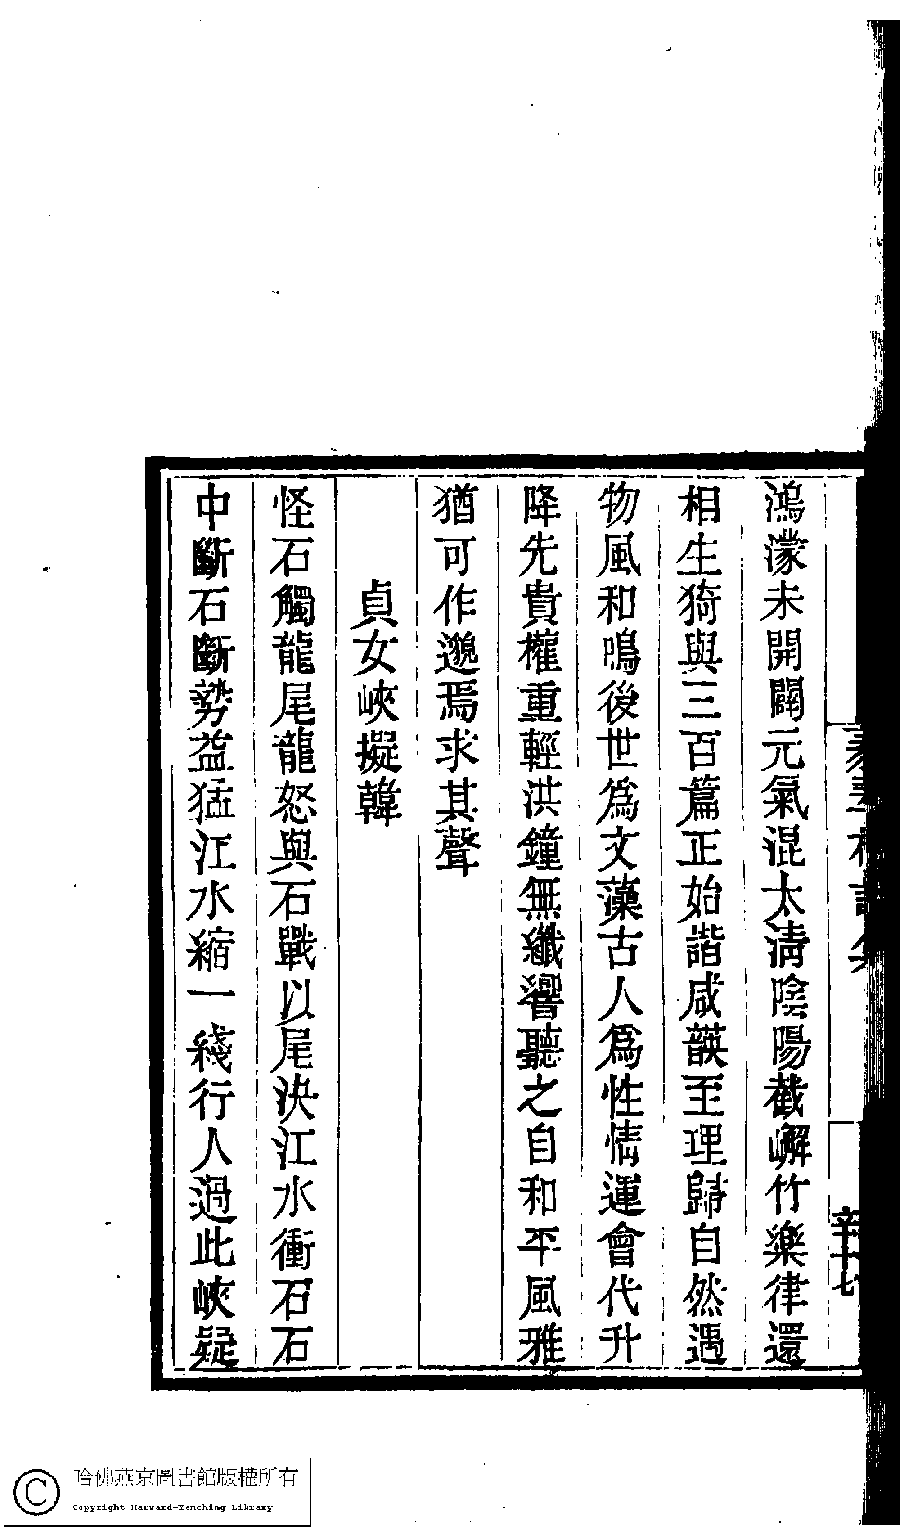 鴻濛未開闢元氣混太清陰陽截嶰竹樂律還
相生猗與三百篇正始諧咸韺至理歸自然遇
物風和鳴後世爲文藻古人爲性情運會代升
降先貴權重輕洪鐘無纖響聽之自和平風雅
猶可作邈焉求其聲
貞女峽擬韓
怪石觸龍尾龍怒與石戰以尾決江水衝石石
中斷石斷勢益猛江水縮一綫行人過此峽疑
哈佛燕京圖書館版權所有
Copyright Harvard-Yenching Library